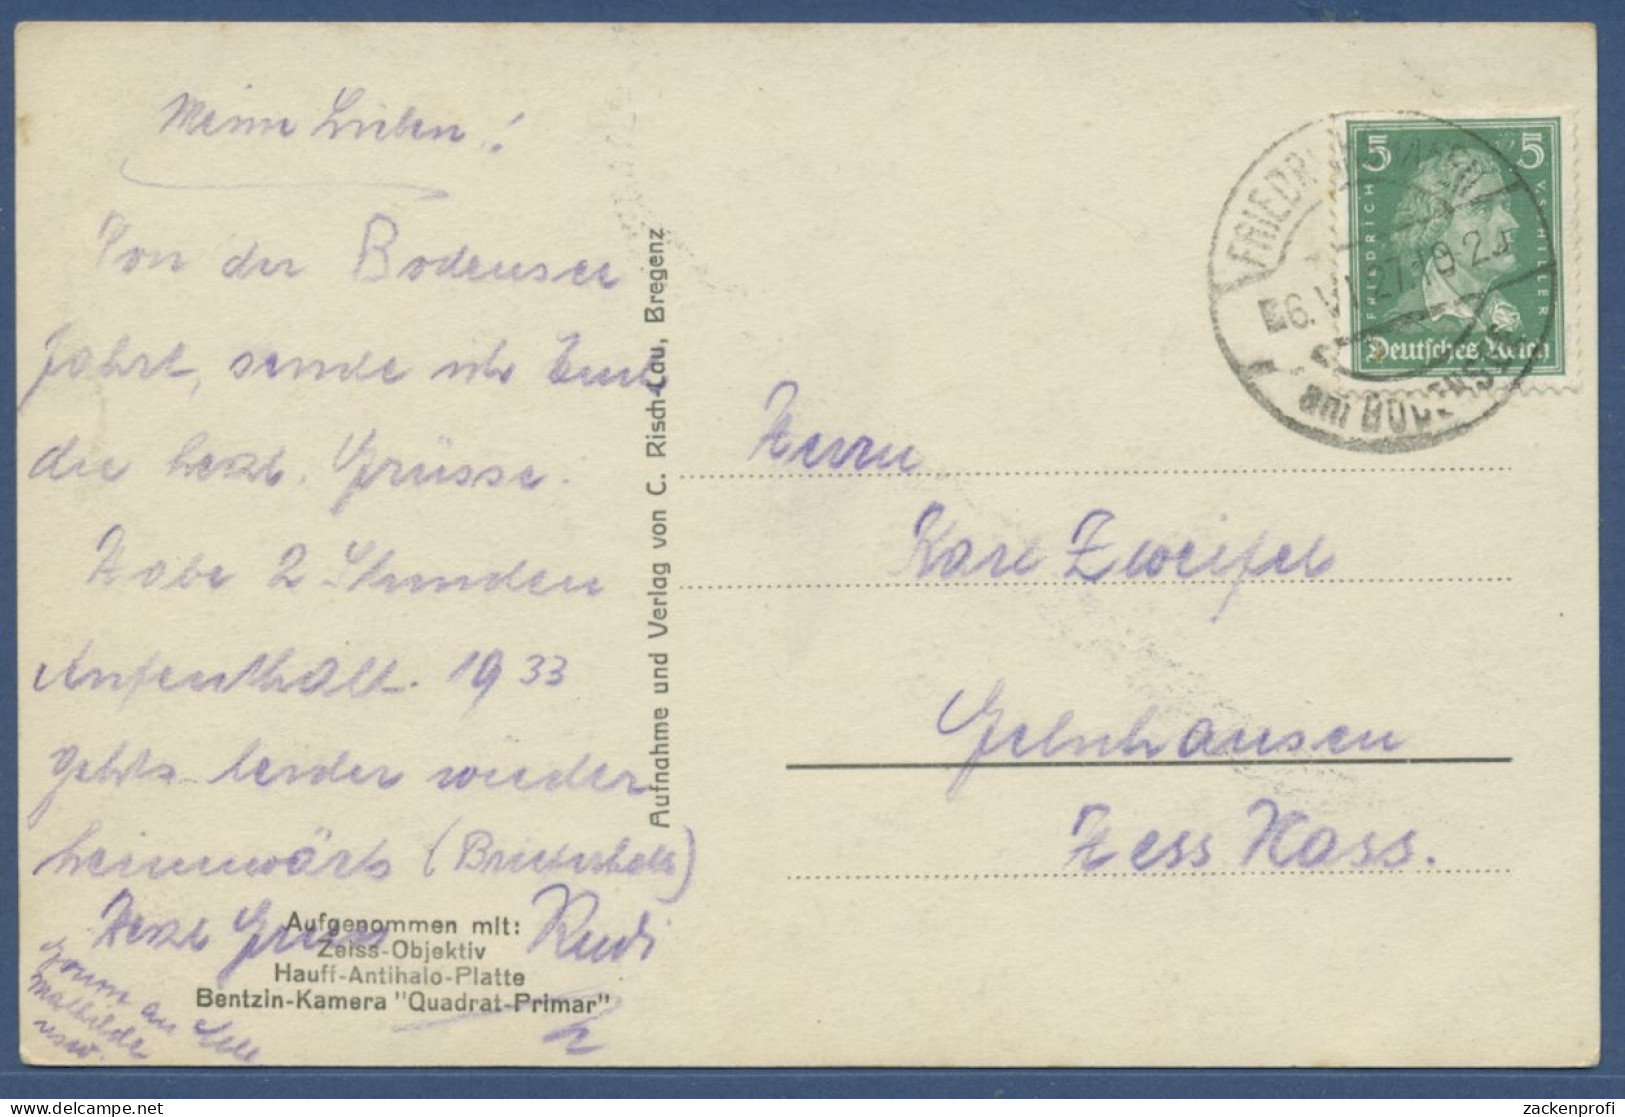 Meine Lieben!
Von der Bodensee
fahrt, sende ich Euch
die herzl. Grüsse.
Habe 2 Stunden
Aufenthalt. 1933
gehts leider wieder
heimwärts
Herzl Gruss Rudi
Grüsse an Alle
Mathilde
usw.
Aufgenommen mit:
Zeiss-Objektiv
Hauff-Antihalo-Platte
Bentzin-Kamera "Quadrat-Primar"
Aufnahme und Verlag von C. Risch-Lau, Bregenz
5 5
FRIEDRICH V. SCHILLER
Deutsches Reich
FRIEDRICHSHAFEN
6.VI.27.
am BODENSEE
Herrn
Karl Zweifel
Gelnhausen
Hess Nass.
zackenprofi